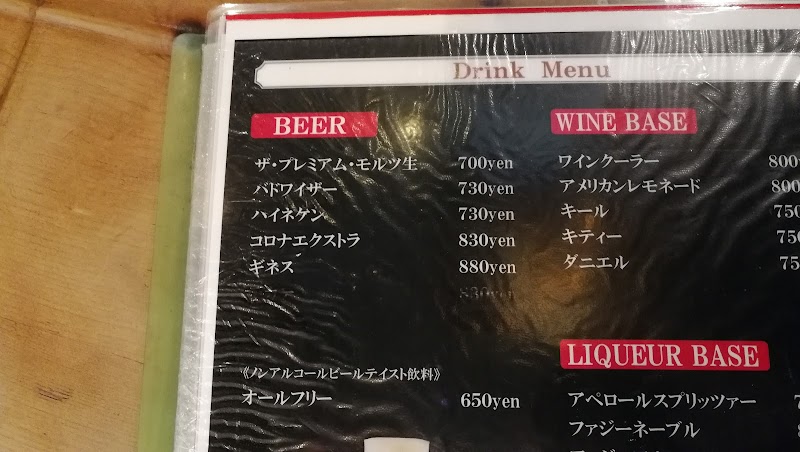 Drink Menu
BEER
ザ・プレミアム・モルツ生 700yen
バドワイザー 730yen
ハイネケン 730yen
コロナエクストラ 830yen
ギネス 880yen
830yen
《ノンアルコールビールテイスト飲料》
オールフリー 650yen
WINE BASE
ワインクーラー 800
アメリカンレモネード 800
キール 750
キティー 750
ダニエル 75
LIQUEUR BASE
アペロールスプリッツァー
ファジーネーブル